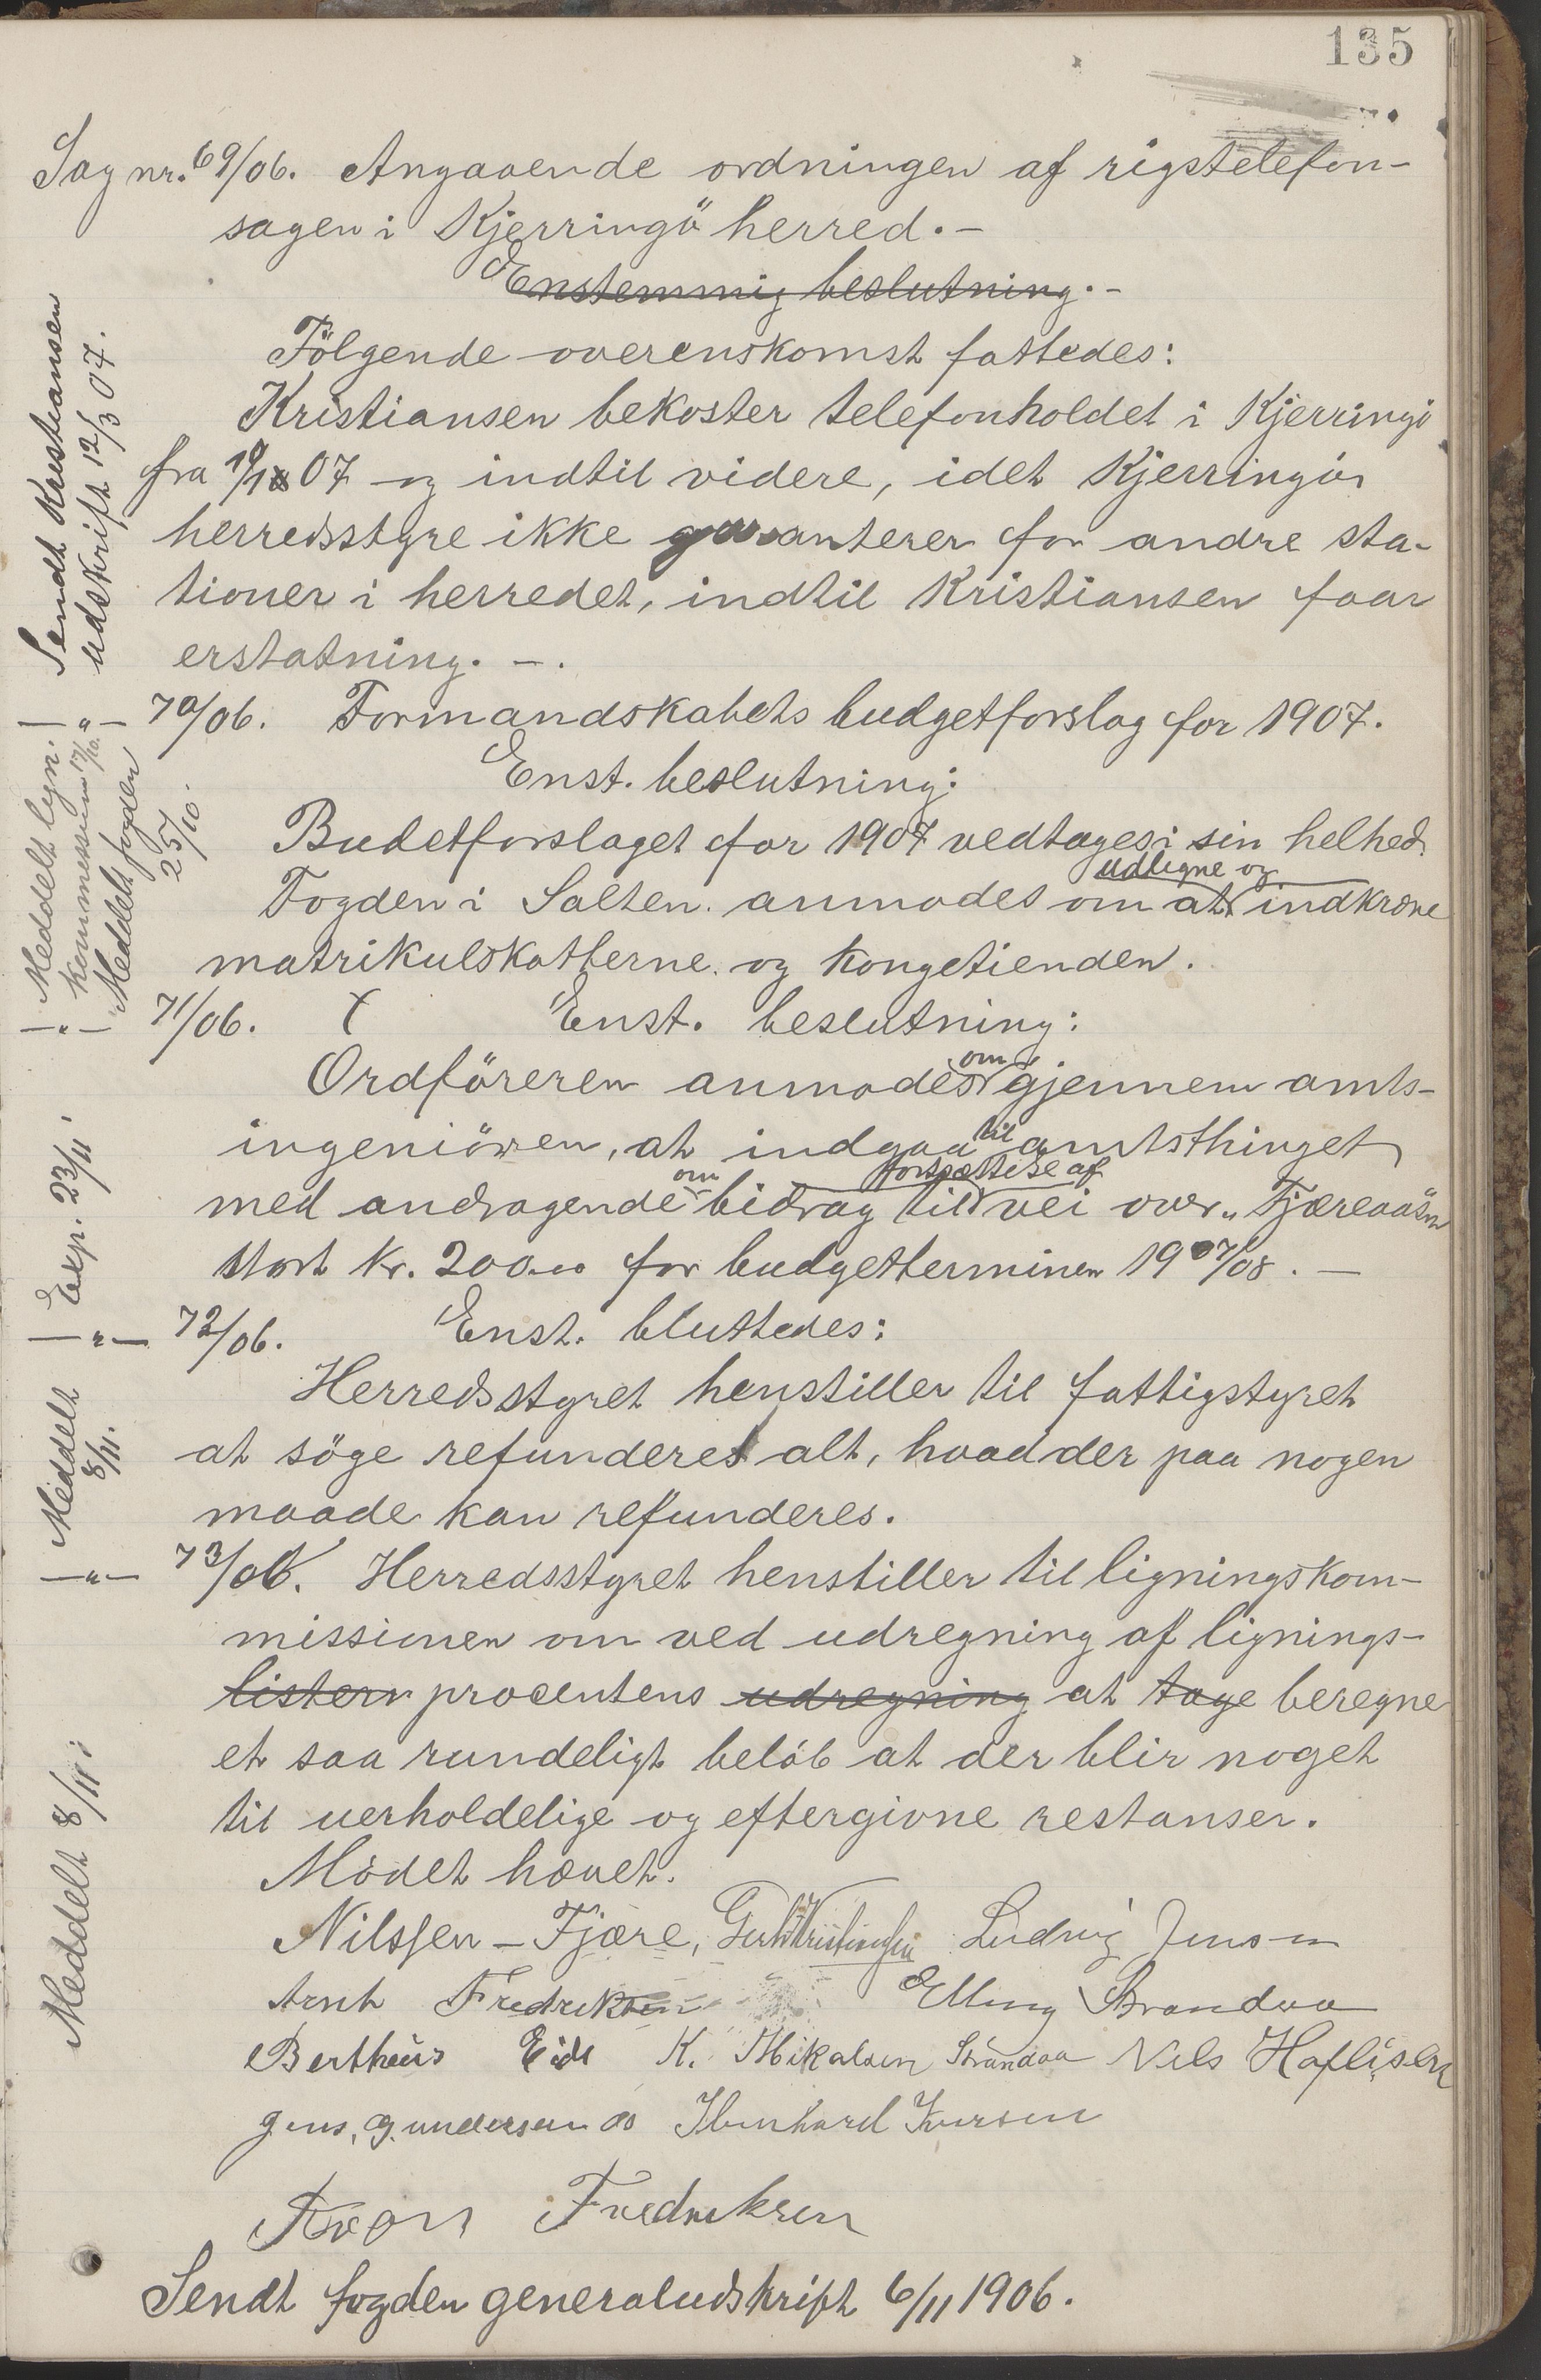 135
Sag nr. 69/06. Angaaende ordningen af rigstelefon-
sagen i Kjerringö herred. -
Enstemmig beslutning. -
Fölgende overenskomst fattedes:
Kristiansen bekoster telefonholdet i Kjerringö
fra 07 og indtil videre, idet Kjerringös
herredsstyre ikke garanterer for andre sta-
tioner i herredet, indtil Kristiansen faar
erstatning. -.
Sendt Kristiansen
udskrift 12/3 07.
-"- 70/06. Formandskabets budgetforslag for 1907.
Enst. beslutning:
Budetforslaget for 1907 vedtages i sin helhed.
udligne og
Fogden i Salten anmodes om at indkræve
matrikulskatterne og kongetienden.
Meddelt lign.
kommissionen 17/10.
Meddelt fogden
25/10.
-"- 71/06. Enst. beslutning:
om
Ordföreren anmodes gjennem amts-
til
ingeniören, at indgaa amtsthinget
om fortsættelse af
med andragende bidrag til vei over "Fjæreaasen
stort kr. 200.00 for budgetterminen 1907/08. -
Exp. 23/11.
-"- 72/06. Enst. bluttedes:
Herredsstyret henstiller til fattigstyret
at söge refunderet alt, hvad der paa nogen
maade kan refunderes.
Meddelt
8/11.
-"- 73/06. Herredsstyret henstiller til ligningskom-
missionen om ved udregning af lignings-
listern procentens udregning at tage beregne
et saa rundeligt belöb at der blir noget
til uerholdelige og eftergivne restanser.
Meddelt 8/11.
Mödet hævet.
Nilssen - Fjære, Kristiansen Ludvig Jensen
Arnt Fredriksen Elling Strandaa
Bertheus Eide K. Mikalsen Strandaa Nils Hafliisen
Jens, Gundersen Iversen
Aron Fredriksen
Sendt fogden generaludskrift 6/11 1906.